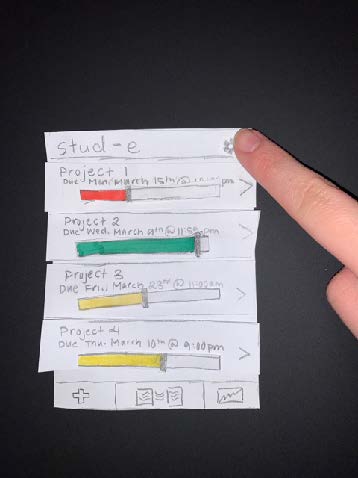 stud-e
Project 1
Due Mon. March 15th @ pm
Project 2
Due Wed. March @ 11:59pm
Project 3
Due Fri. March 23rd @ 11:00am
Project 4
Due Thu. March 10th @ 9:00pm